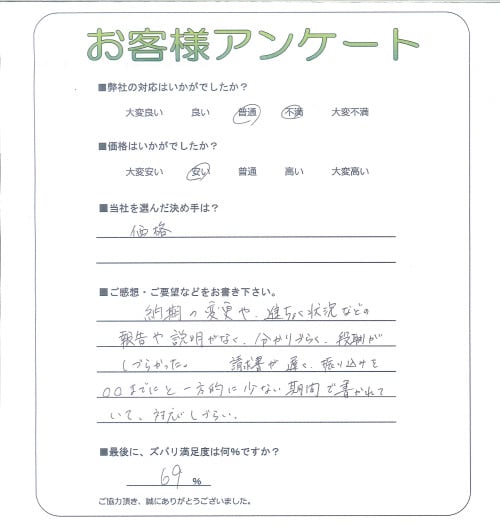 お客様アンケート
■弊社の対応はいかがでしたか？
大変良い 良い 普通 不満 大変不満
■価格はいかがでしたか？
大変安い 安い 普通 高い 大変高い
■当社を選んだ決め手は？
価格
■ご感想・ご要望などをお書き下さい。
納期の変更や、進ちょく状況などの
報告や説明がなく、分かりづらく、段取が
しづらかった。 請求書が遅く、振り込みを
〇〇までにと一方的に少ない期間で書かれて
いて、対応しづらい。
■最後に、ズバリ満足度は何％ですか？
69 ％
ご協力頂き、誠にありがとうございました。